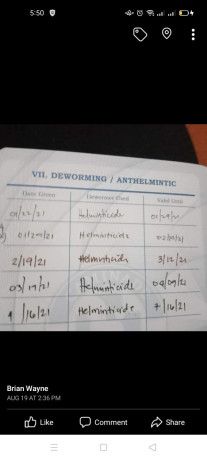 5:50
VII. DEWORMING / ANTHELMINTIC
Date Given Dewormer Used Valid Until
01/22/21 Helminticide 01/29/21
01/29/21 Helminticide 02/19/21
2/19/21 Helminticide 3/12/21
03/19/21 Helminticide 04/09/21
/16/21 Helminticide 7/16/21
Brian Wayne
AUG 19 AT 2:36 PM
Like Comment Share